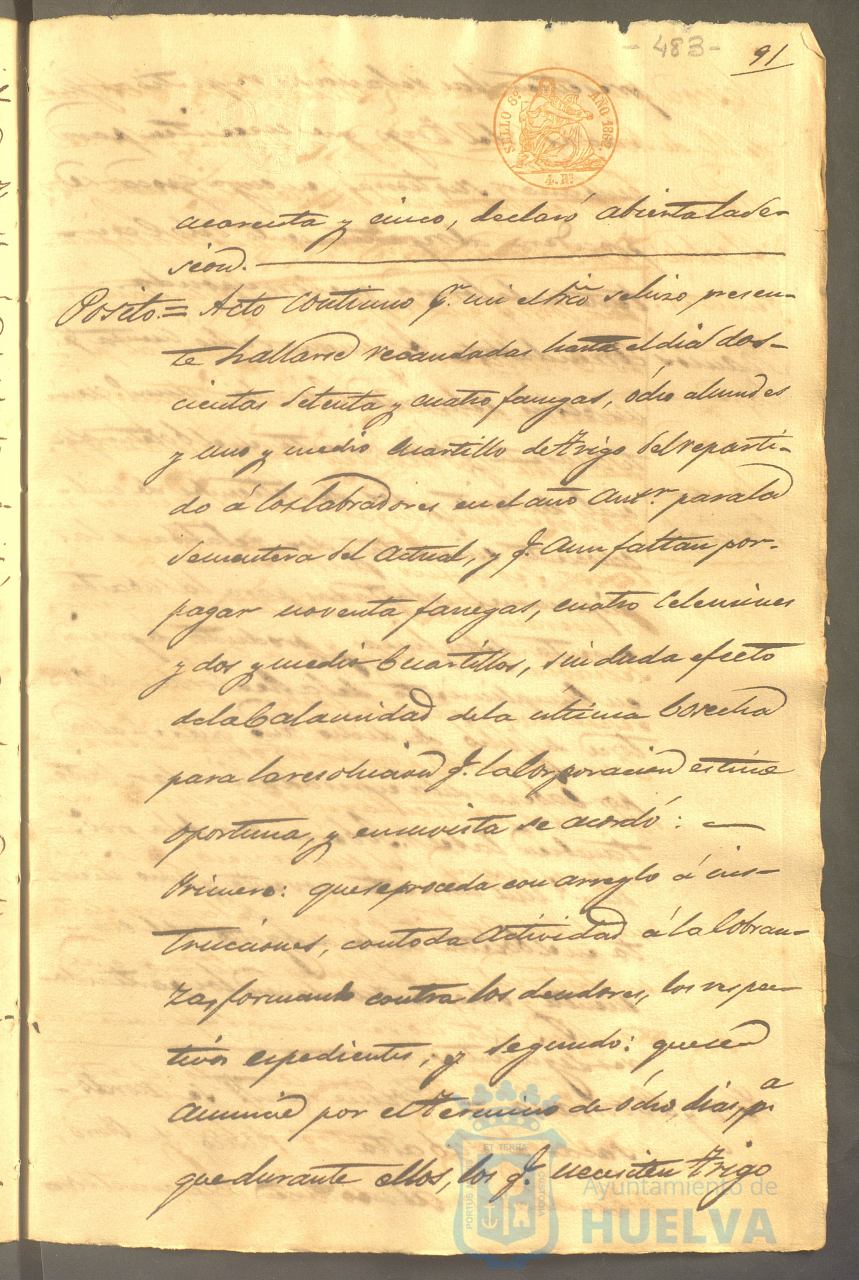 - 483 -
91
SELLO 6º AÑO 1862.
4. Rˢ
cuarenta y cinco, declaró abierta la se-
sion.
Posito.= Acto continuo qᵉ mi el Srio se hizo presen-
te hallarse recaudadas hasta el dia dos-
cientas setenta y cuatro fanegas, ócho almudes
y uno y medio cuartillo de trigo del reparti-
do á los labradores en el año antʳ. para la
sementera del actual, y qᵉ aun faltan por-
pagar noventa fanegas, cuatro celemines
y dos y medio Cuartillos, sin duda efecto
de la Calamidad de la ultima Cosecha
para la resolucion qᵉ la Corporacion estime
oportuna, y en su vista se acordó:
Primero: que se proceda con arreglo á ins-
trucciones, con toda actividad á la Cobran-
za, formando contra los deudores, los respec-
tivos espedientes; y segundo: que se
anuncie por el termino de ócho dias, pᵃ
que durante ellos, los qᵉ necesiten trigo
PORTUS ET TERRA CUSTODIA
Ayuntamiento de
HUELVA